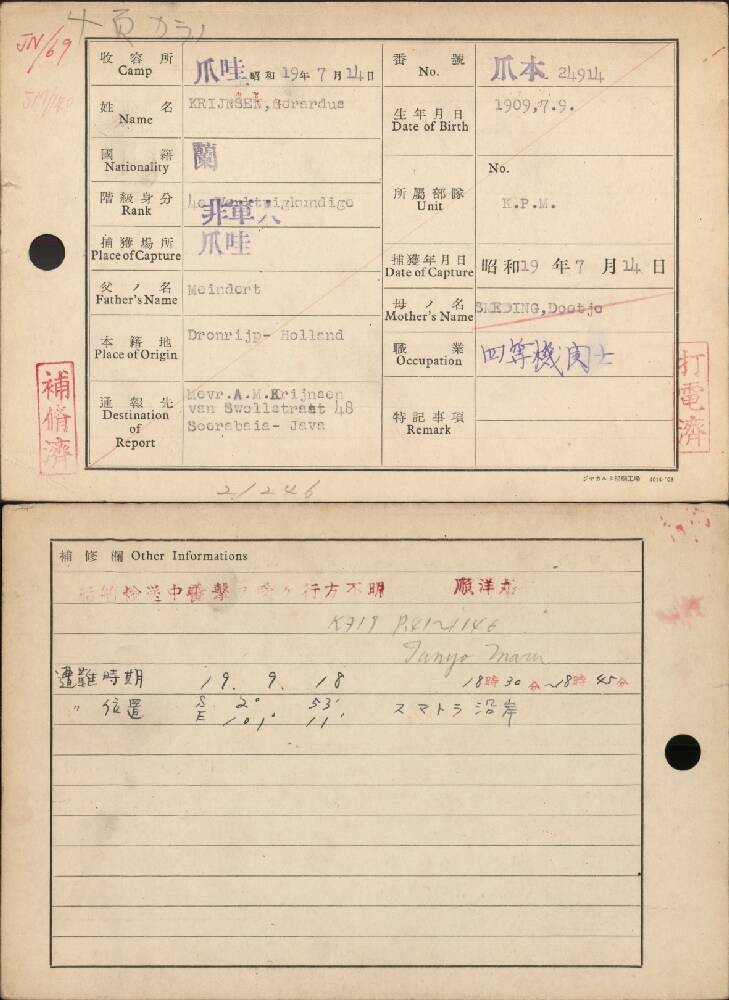 十頁カラノ
JN/69
收容所 Camp 爪哇 昭和19年7月14日
番號 No. 爪本 24914
姓名 Name KRIJNSEN, Gerardus
生年月日 Date of Birth 1909,7.9.
國籍 Nationality 蘭
階級身分 Rank 4e Werktuigkundige 非軍人
所屬部隊 Unit No. K.P.M.
捕獲場所 Place of Capture 爪哇
捕獲年月日 Date of Capture 昭和19年7月14日
父ノ名 Father's Name Meindert
母ノ名 Mother's Name SMEDING, Dootjo
本籍地 Place of Origin Dronrijp- Holland
職業 Occupation 四等機関士
通報先 Destination of Report Mevr.A.M.Krijnsen
van Swollstraat 48
Soerabaia- Java
特記事項 Remark
補脩濟
打電濟
21246
補修欄 Other Informations
輸送中雷擊ヲ受ケ行方不明 順洋丸
P.41~1146
Junyo Maru
遭難時期 19. 9. 18 18時30分~18時45分
〃 位置 S 2° 53'
E 101° 11' スマトラ沿岸